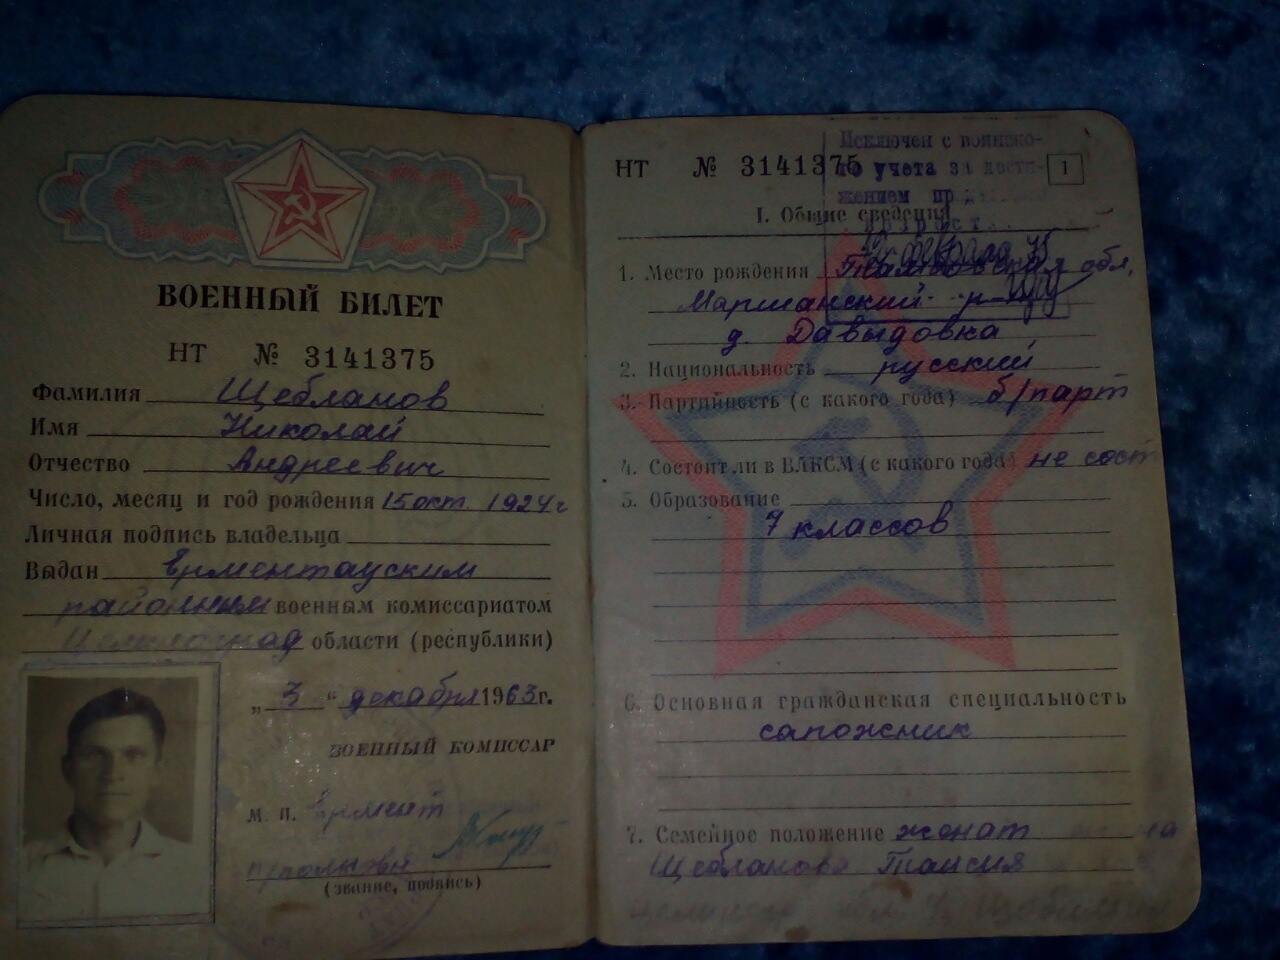 ВОЕННЫЙ БИЛЕТ
НТ № 3141375
Фамилия Щебланов
Имя Николай
Отчество Андреевич
Число, месяц и год рождения 15 окт. 1924 г
Личная подпись владельца
Выдан Ерментауским
районным военным комиссариатом
Целиноград области (республики)
„ 3 “ декабря 1963 г.
ВОЕННЫЙ КОМИССАР
М. П. Ермент
(звание, подпись)
НТ № 3141375
1
Исключен с воинско-
го учета за дости-
жением
I. Общие сведения
1. Место рождения Тамбовская обл.
Моршанский р-н
д. Давыдовка
2. Национальность русский
3. Партийность (с какого года) б/парт
4. Состоит ли в ВЛКСМ (с какого года) не сост
5. Образование
7 классов
6. Основная гражданская специальность
сапожник
7. Семейное положение женат
Щебланова Таисия